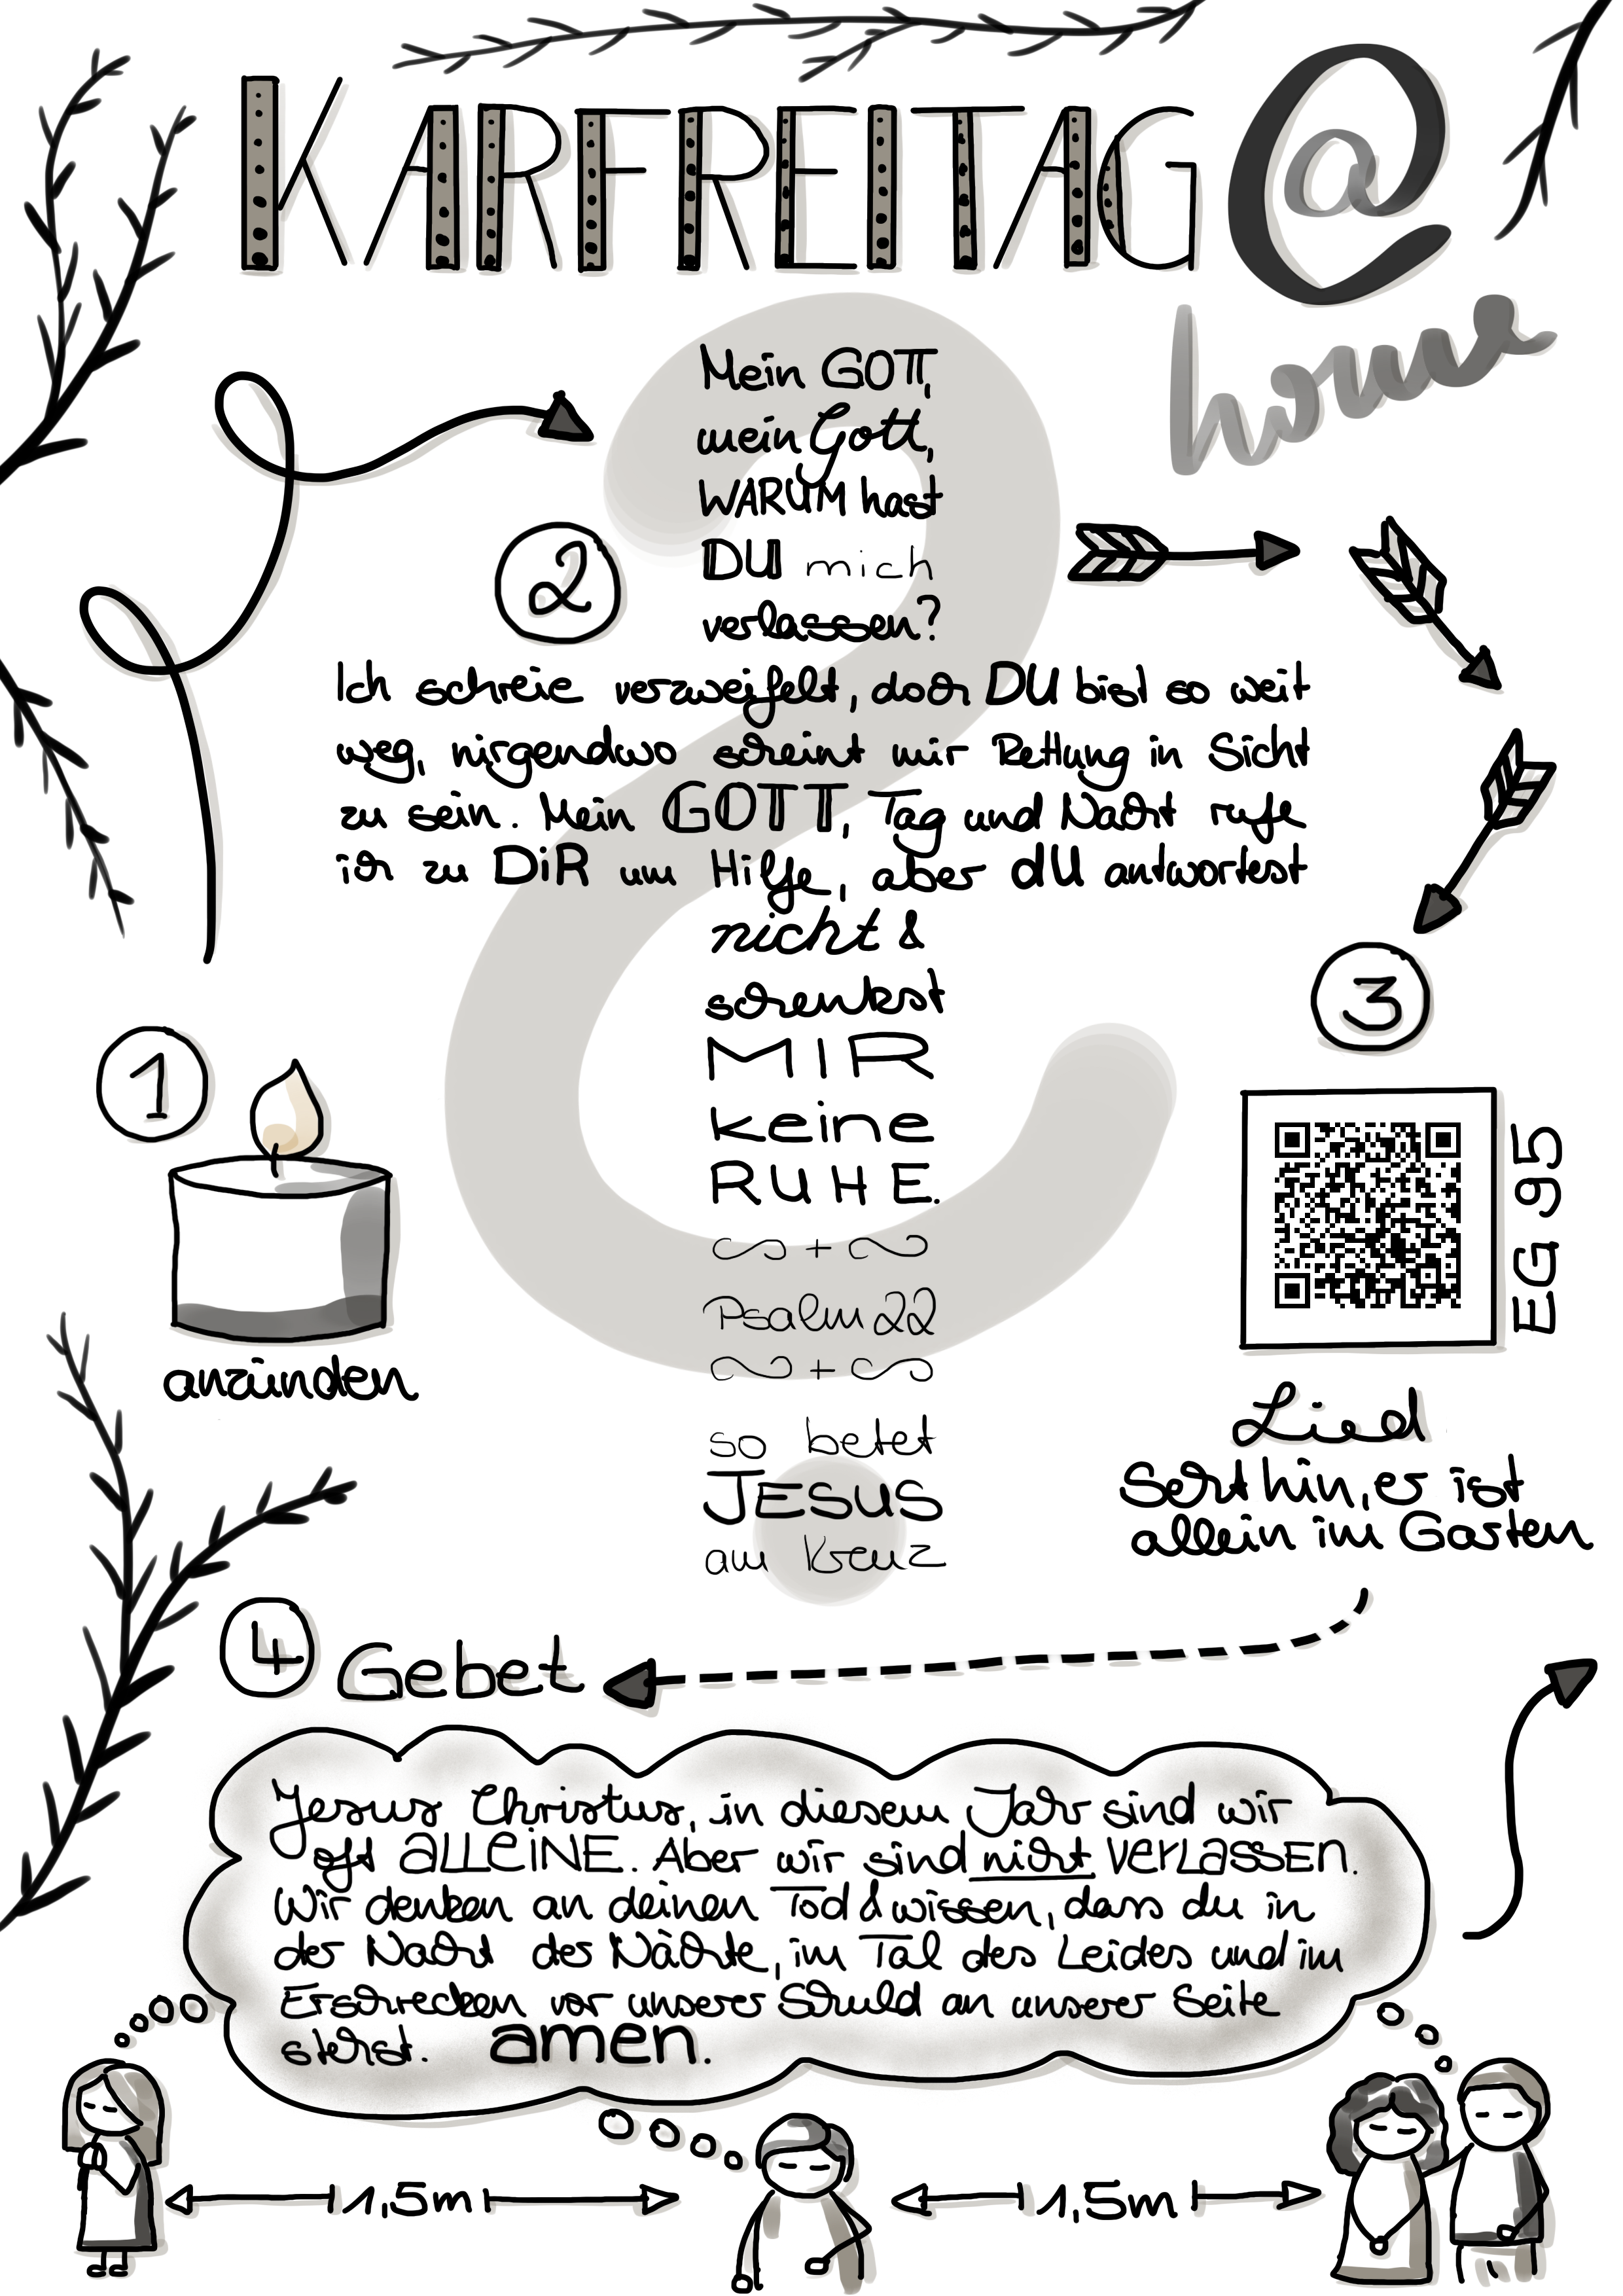 KARFREITAG @
home
1
anzünden
2
Mein GOTT,
mein Gott,
WARUM hast
DU mich
verlassen?
Ich schreie verzweifelt, doch DU bist so weit
weg, nirgendwo scheint mir Rettung in Sicht
zu sein. Mein GOTT, Tag und Nacht rufe
ich zu DiR um Hilfe, aber dU antwortest
nicht &
schenkst
MIR
keine
RUHE.
Psalm 22
so betet
JESUS
am Kreuz
3
EG 95
Lied
Seht hin, er ist
allein im Garten
4 Gebet
Jesus Christus, in diesem Jahr sind wir
oft aLLeiNE. Aber wir sind nicht VerLaSSEn.
Wir denken an deinen Tod & wissen, dass du in
der Nacht der Nächte, im Tal des Leides und im
Erschrecken vor unserer Schuld an unserer Seite
stehst. amen.
1,5m
1,5m